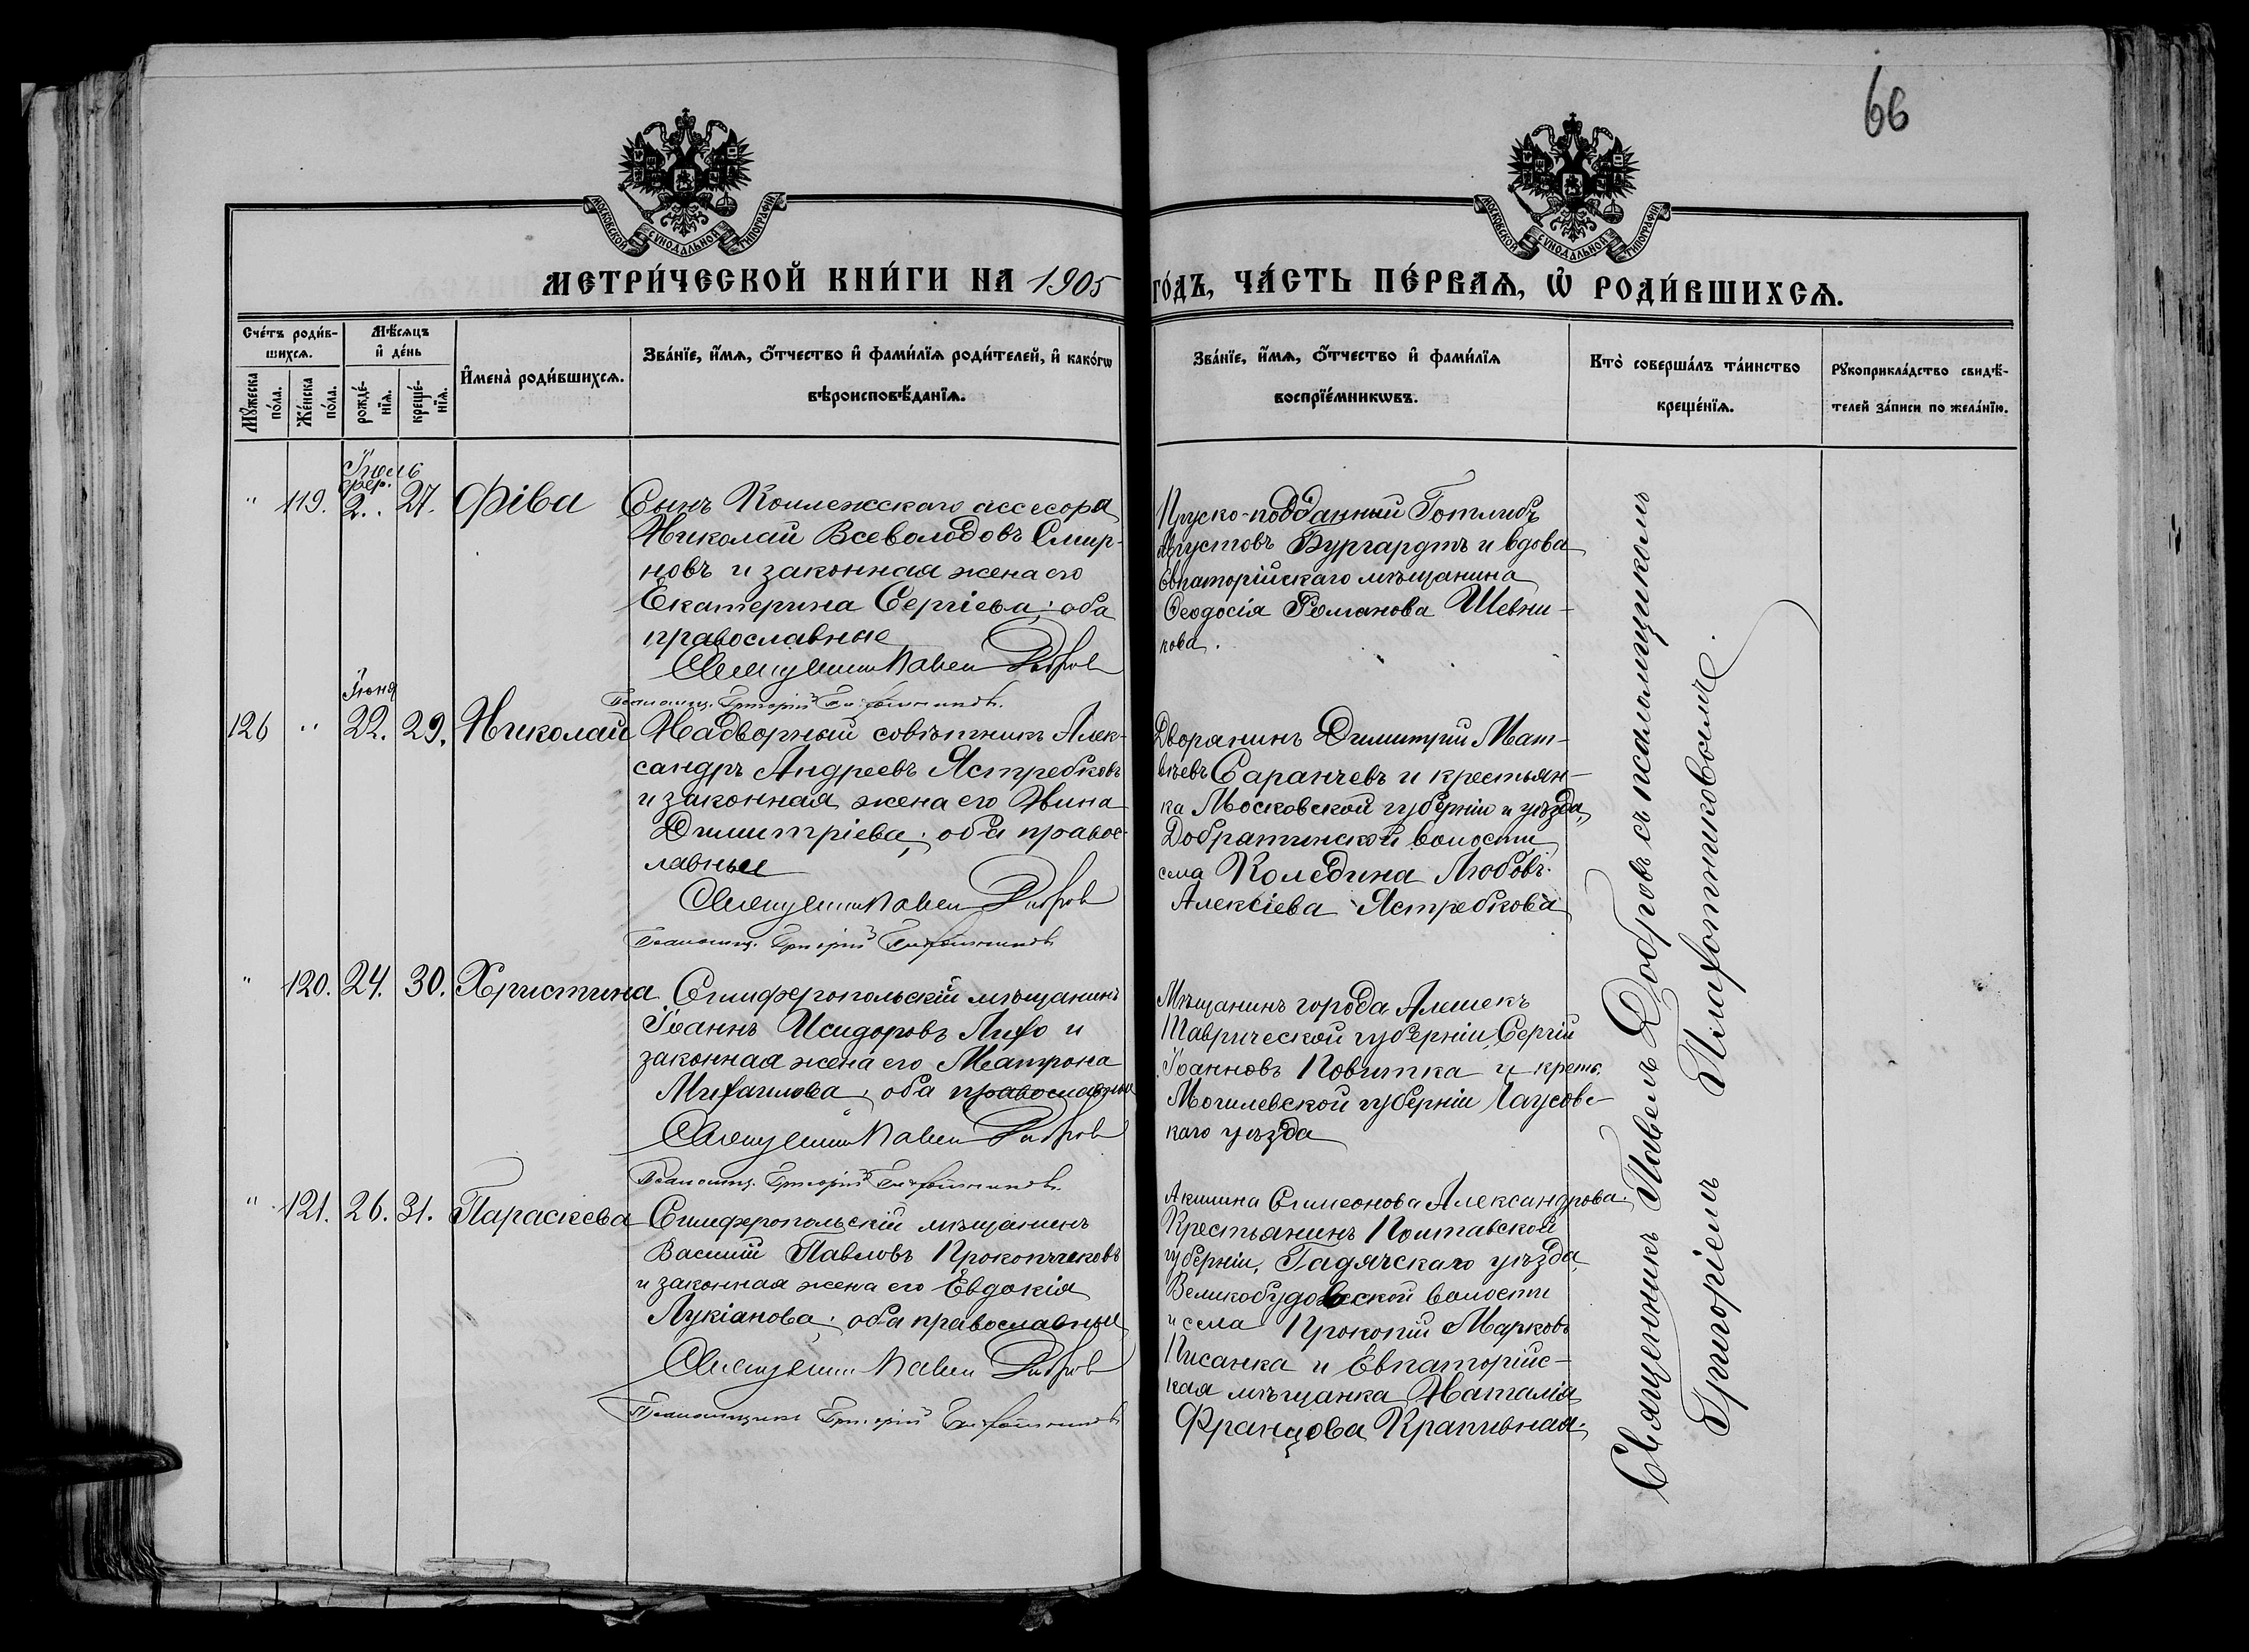 66
МОСКОВСКОЙ СѴНОДАЛЬНОЙ ТИПОГРАФІИ
МОСКОВСКОЙ СѴНОДАЛЬНОЙ ТИПОГРАФІИ
МЕТРИ́ЧЕСКОЙ КНИ́ГИ НА 1905 ГО́ДЪ, ЧА́СТЬ ПЕ́РВАѦ, Ѡ҆ РОДИ́ВШИХСѦ.
Сче́тъ роди́в-
шихсѧ.
Мꙋ́жеска по́ла.
Же́нска по́ла.
Мѣ́сѧцъ
и҆ де́нь
рожде́-
нїѧ.
креще́-
нїѧ.
И҆мена̀ роди́вшихсѧ.
Зва́нїе, и҆́мѧ, ѻ҆́тчество и҆ фами́лїѧ роди́телей, и҆ како́гѡ
вѣроисповѣ́данїѧ.
Зва́нїе, и҆́мѧ, ѻ҆́тчество и҆ фами́лїѧ
воспрїе́мникѡвъ.
Кто̀ соверша́лъ та́инство
креще́нїѧ.
Рꙋкоприкла́дство свидѣ́-
телей за́писи по жела́нїю.
Іюль
фер.
" 119. 2. 27. Фіва
Сынъ Коллежскаго ассесора
Николай Всеволодовъ Смир-
новъ и законная жена его
Екатерина Сергіева; оба
православные
Священникъ Павелъ Добров
Псаломщ. Григорій Плафонтиковъ.
Пруско-подданный Готлибъ
Августовъ Бургардтъ и вдова
Евпаторійскаго мѣщанина
Ѳеодосія Романова Шевни-
кова.
Іюня
126 " 22. 29. Николай
Надворный совѣтникъ Алек-
сандръ Андреевъ Ястребковъ
и законная жена его Нина
Димитріева; оба правос-
лавные
Священникъ Павелъ Добров
Псаломщ. Григорій Плафонтиковъ
Дворянинъ Димитрій Мат-
вѣевъ Саранчевъ и крестьян-
ка Московской губерніи и уѣзда,
Добратинской волости
села Коледина Любовь
Алексіева Ястребкова
" 120. 24. 30. Христина
Симферопольскій мѣщанинъ
Іоаннъ Исидоровъ Лифо и
законная жена его Матрона
Михаилова; оба православные
Священникъ Павелъ Добров
Псаломщ. Григорій Плафонтиковъ.
Мѣщанинъ города Алешекъ
Таврической губерніи, Сергій
Іоанновъ Повитка и крест.
Могилевской губерніи Чаусовс-
каго уѣзда
Акилина Симеонова Александрова.
" 121. 26. 31. Параскева
Симферопольскій мѣщанинъ
Василій Павловъ Прокопчековъ
и законная жена его Евдокія
Лукіанова; оба православные
Священникъ Павелъ Добров
Псаломщикъ Григорій Плафонтиковъ
Крестьянинъ Полтавской
губерніи, Гадячскаго уѣзда,
Великобудовской волости
и села Прокопій Марковъ
Писанка и Евпаторійс-
кая мѣщанка Наталія
Францова Крапивная.
Священникъ Павелъ Добровъ съ псаломщикомъ
Григоріемъ Плафонтиковымъ.